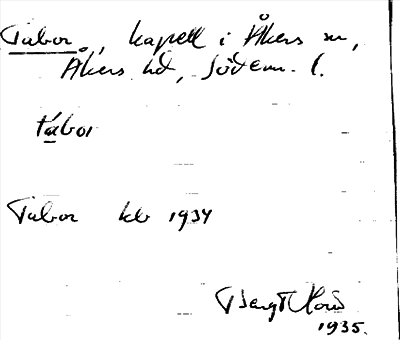 Tabor, kapell i Åkers sn,
Åkers hd, Södem. l.
tábor
Tabor kb 1934
Bengt
1935.